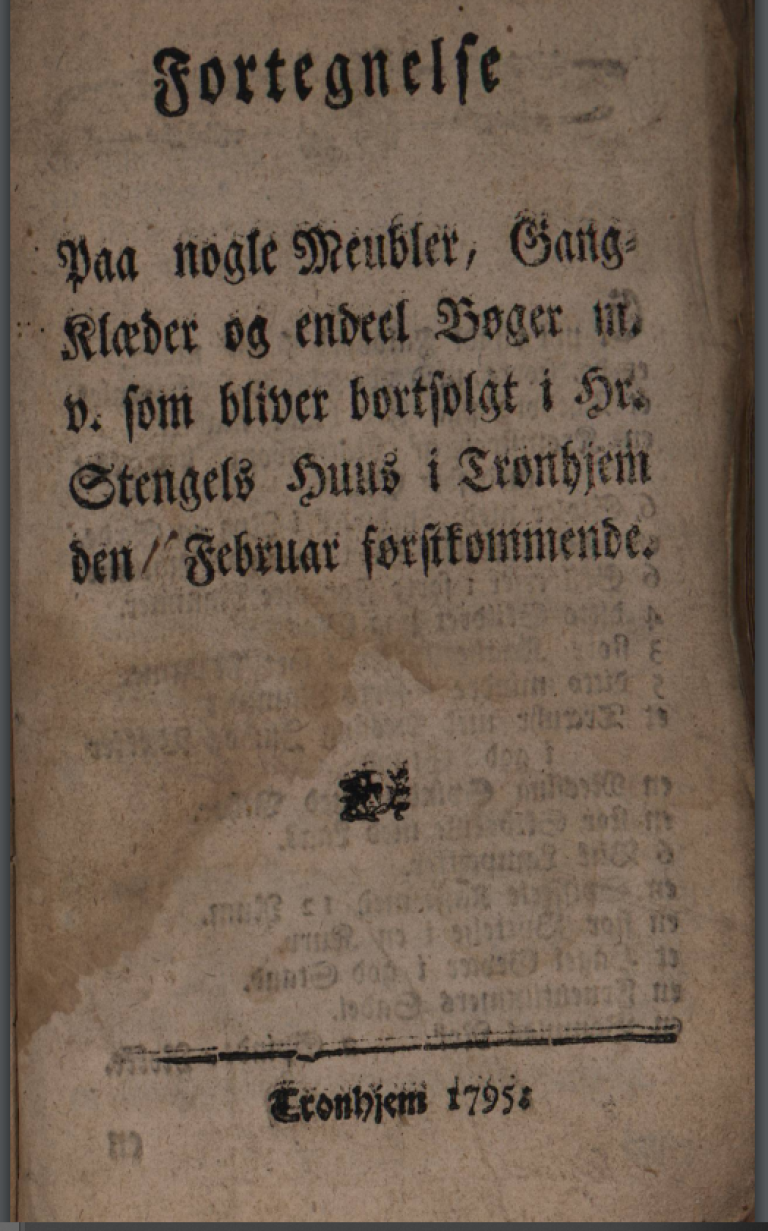 Fortegnelse
Paa nogle Meubler, Gang-
Klæder og endeel Bøger m.
v. som bliver bortsolgt i Hr.
Stengels Huus i Tronhjem
den Februar førstkommende.
Tronhjem 1795.